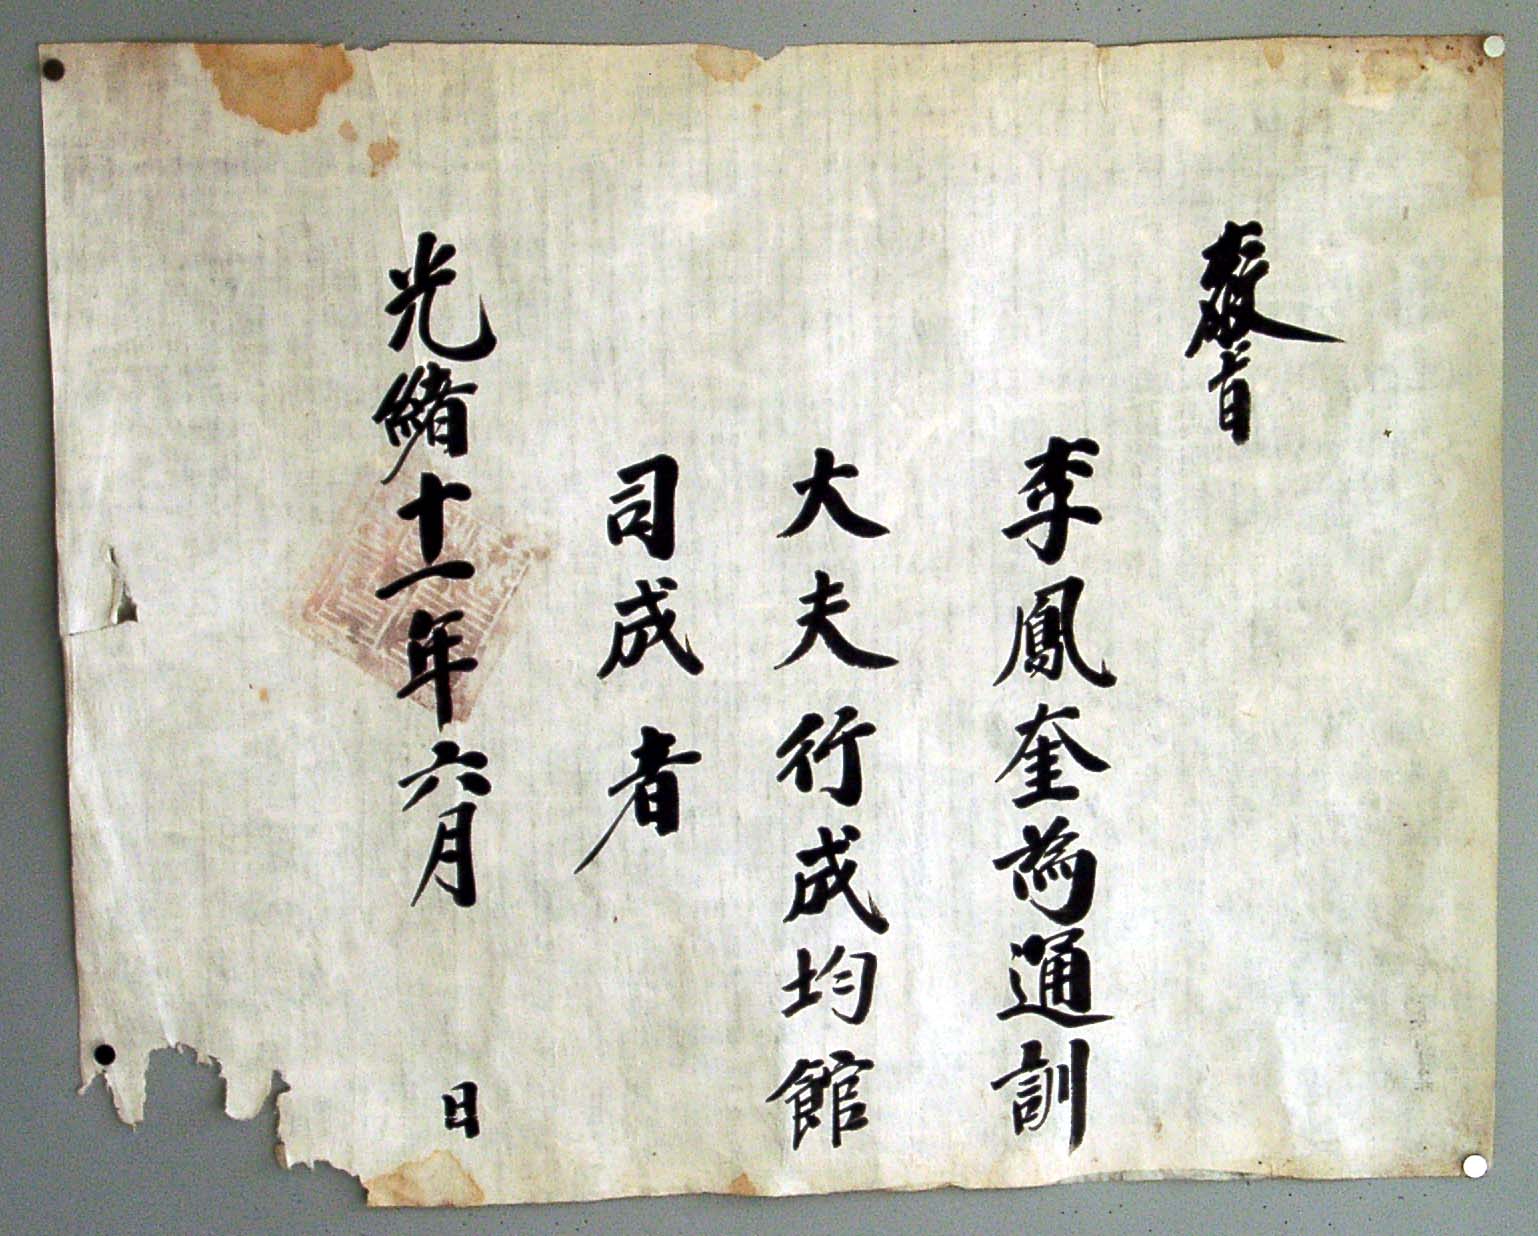 敎旨
李鳳奎為通訓
大夫行成均館
司成者
光緒十一年六月 日